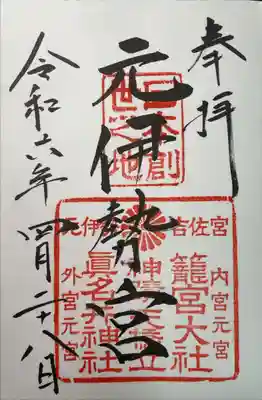 奉拝
元伊勢宮
令和六年四月二十八日
日本創
世之地
吉佐宮
内宮元宮
籠宮大社
天橋立
眞名井神社
外宮元宮